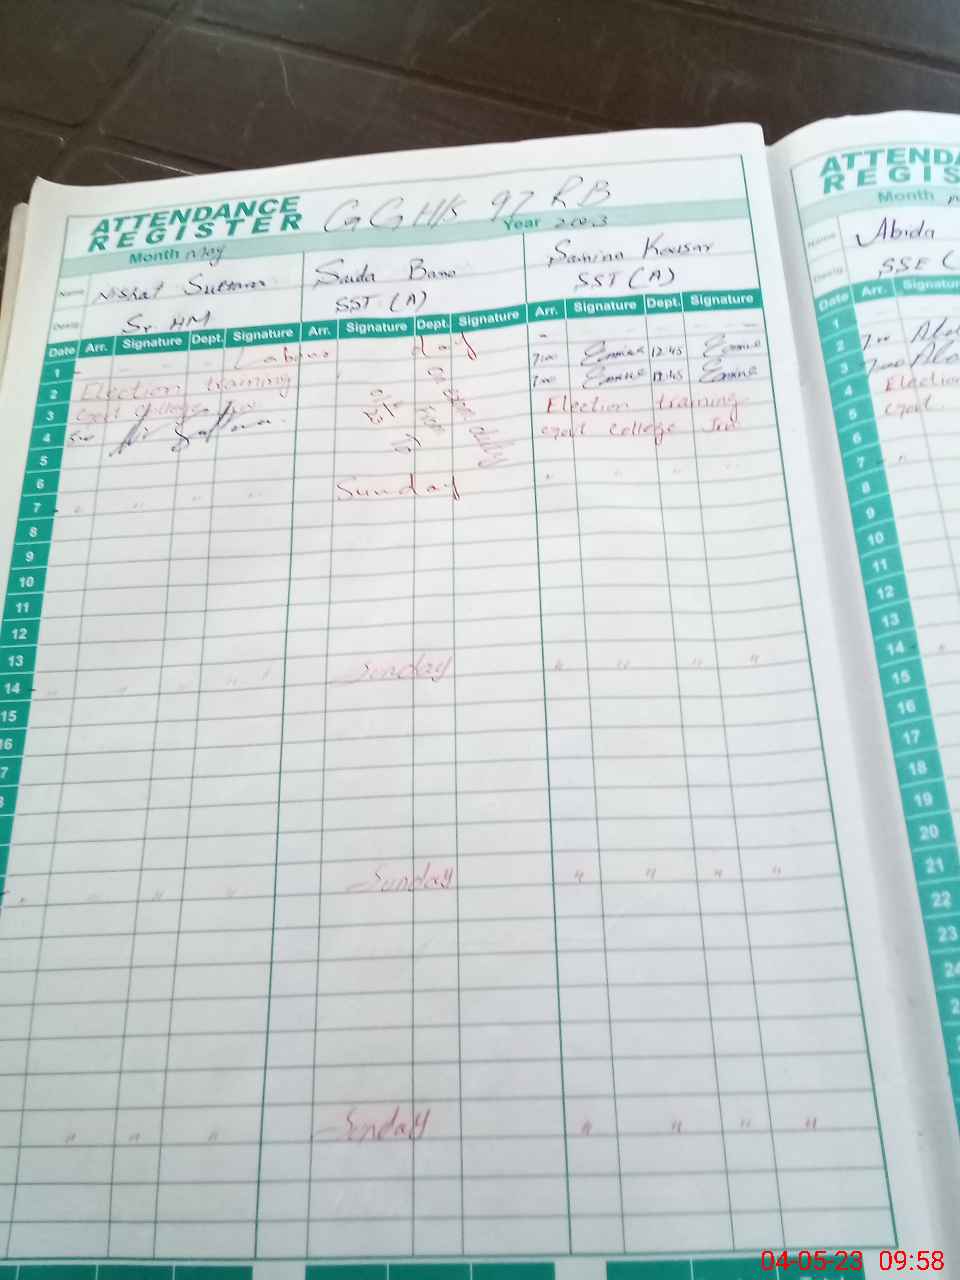 ATTENDANCE
REGISTER
GGHS 97 RB
Month May
Year 2023
Name Nishat Sultana
Sada Bano
Samina Kausar
Desig. Sr. HM
SST (A)
SST (A)
Date Arr. Signature Dept. Signature Arr. Signature Dept. Signature Arr. Signature Dept. Signature
1 Labour day
2 Election training 7:00 12:45
3 Govt College 7:00 12:45
4 Election training
5 Govt College
on exam duty
6
7 " " " " Sunday " " " "
8
9
10
11
12
13
14 " " " " Sunday " " " "
15
16
7
8
" " Sunday " " " "
" " " Sunday " " " "
ATTENDA
REGIS
Month
Name Abida
Desig. SSE (
Date Arr. Signatur
1
2
3
4 Election
5 Govt.
6
7 "
8
9
10
11
12
13
14 "
15
16
17
18
19
20
21
22
23
24
04-05-23 09:58